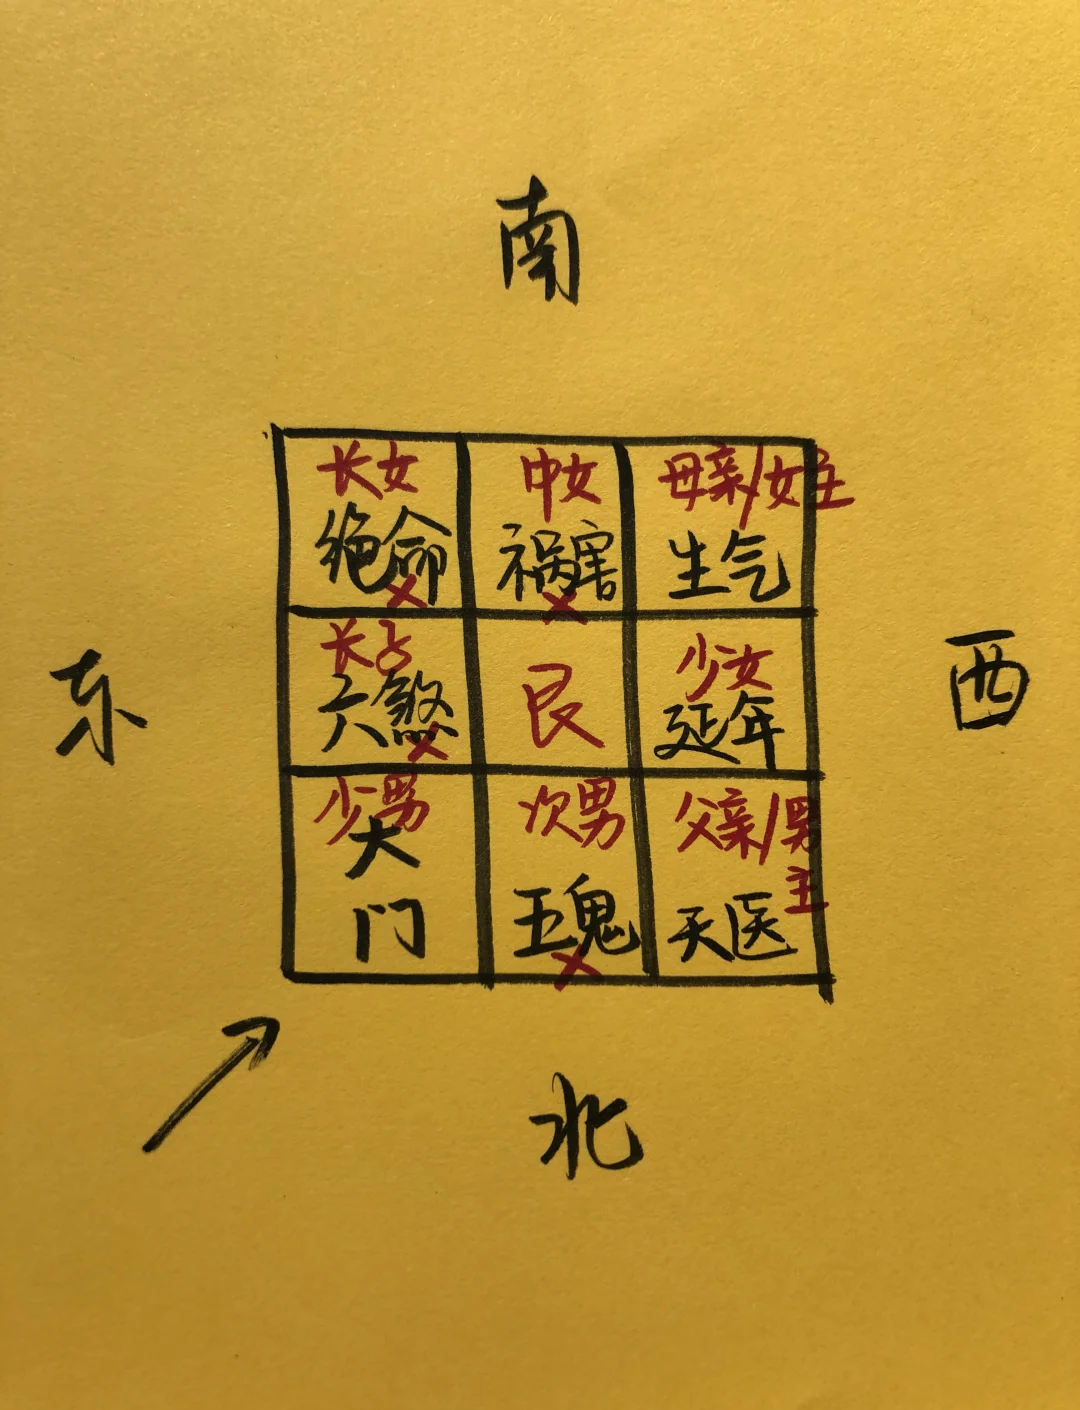 南
长女
绝命
中女
祸害
母亲/女主
生气
东
长子
六煞
艮
少女
延年
西
少男
大
门
次男
五鬼
父亲/男
主
天医
北